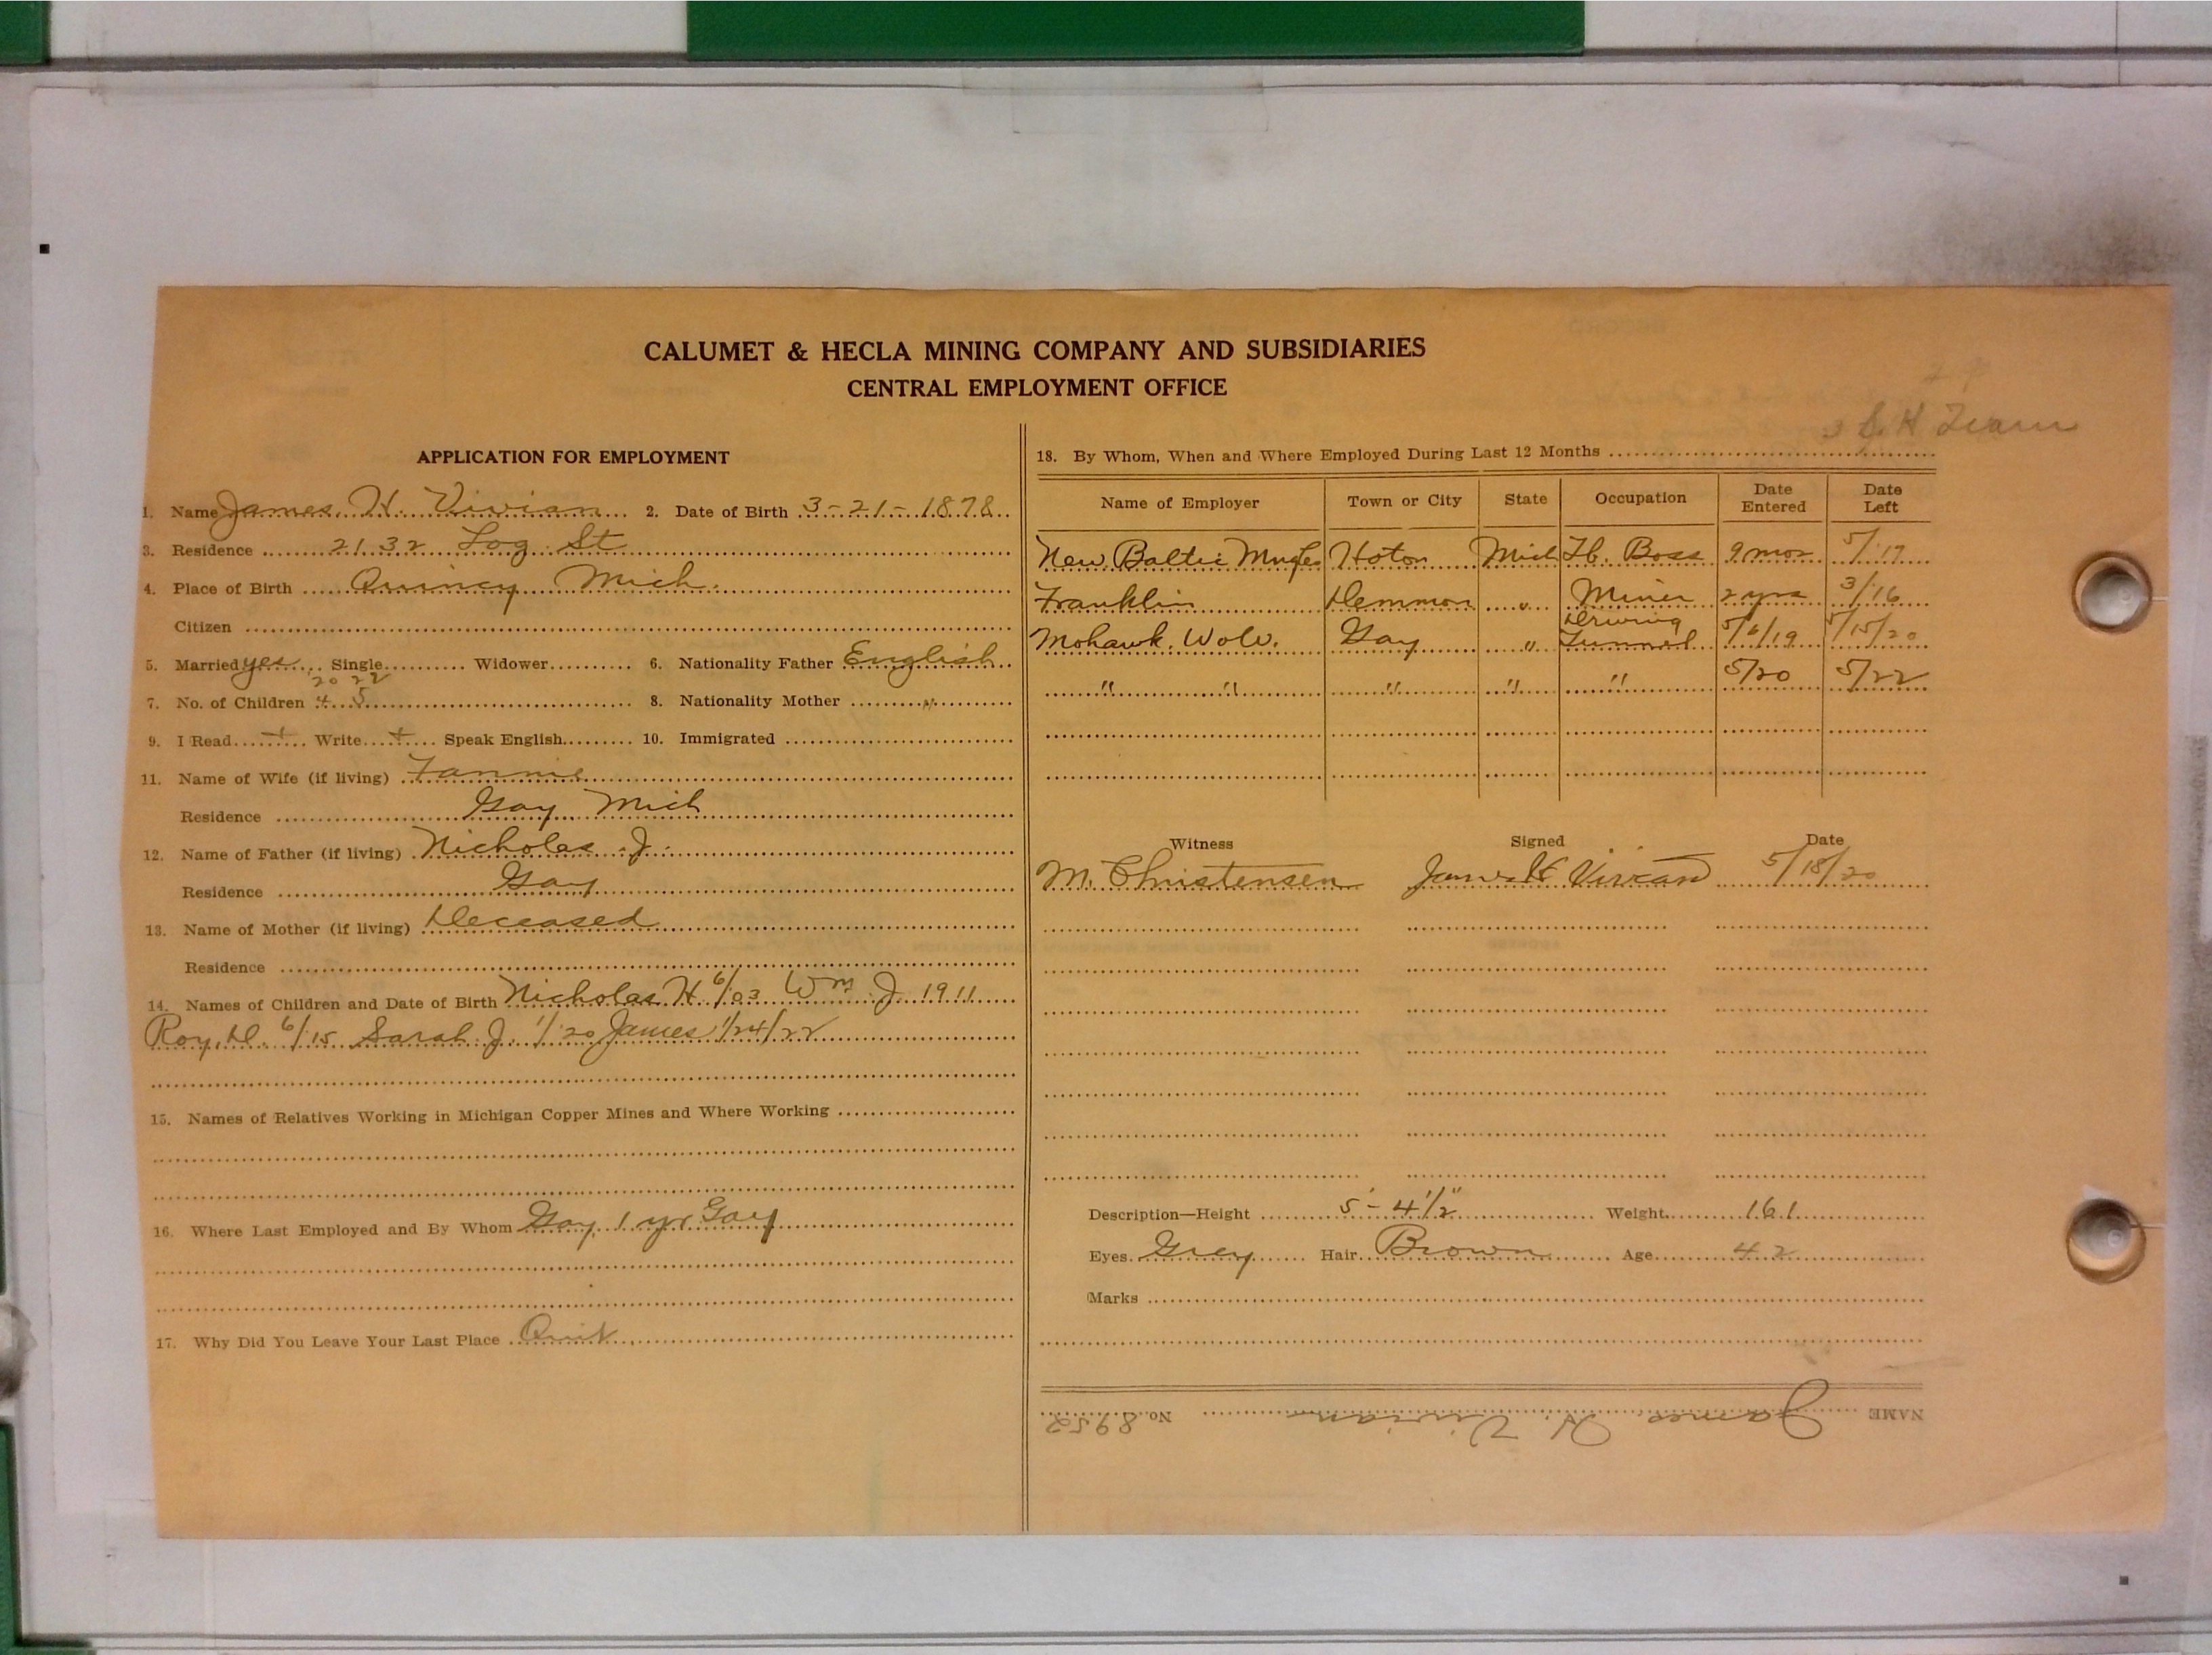 CALUMET & HECLA MINING COMPANY AND SUBSIDIARIES
CENTRAL EMPLOYMENT OFFICE
APPLICATION FOR EMPLOYMENT
1. Name James. H. Vivian 2. Date of Birth 3-21-1878
3. Residence 2132 Log St
4. Place of Birth Quincy Mich.
Citizen
5. Married yes Single Widower 6. Nationality Father English
20 22
7. No. of Children 4 5 8. Nationality Mother "
9. I Read + Write + Speak English 10. Immigrated
11. Name of Wife (if living) Fannie
Residence Gay Mich
12. Name of Father (if living) Nicholas J.
Residence Gay
13. Name of Mother (if living) Deceased
Residence
14. Names of Children and Date of Birth Nicholas H 6/03 Wm J 1911
Roy. D. 6/15 Sarah J. 1/20 James 1/24/22
15. Names of Relatives Working in Michigan Copper Mines and Where Working
16. Where Last Employed and By Whom Gay 1 yr Gay
17. Why Did You Leave Your Last Place Quit
18. By Whom, When and Where Employed During Last 12 Months
Name of Employer Town or City State Occupation Date Entered Date Left
New Baltic Hoton Mich Boss 9 mos 5/17
Franklin Demmon " Miner 2 yrs 3/16
Mohawk. Wolv. Gay " Driving Tunnel 5/6/19 5/15/20
" " " " " 5/20 5/22
Witness Signed Date
M. Christensen James H Vivian 5/18/20
Description—Height 5'-4 1/2" Weight 161
Eyes Grey Hair Brown Age 42
Marks
NAME James H. Vivian No. 8952